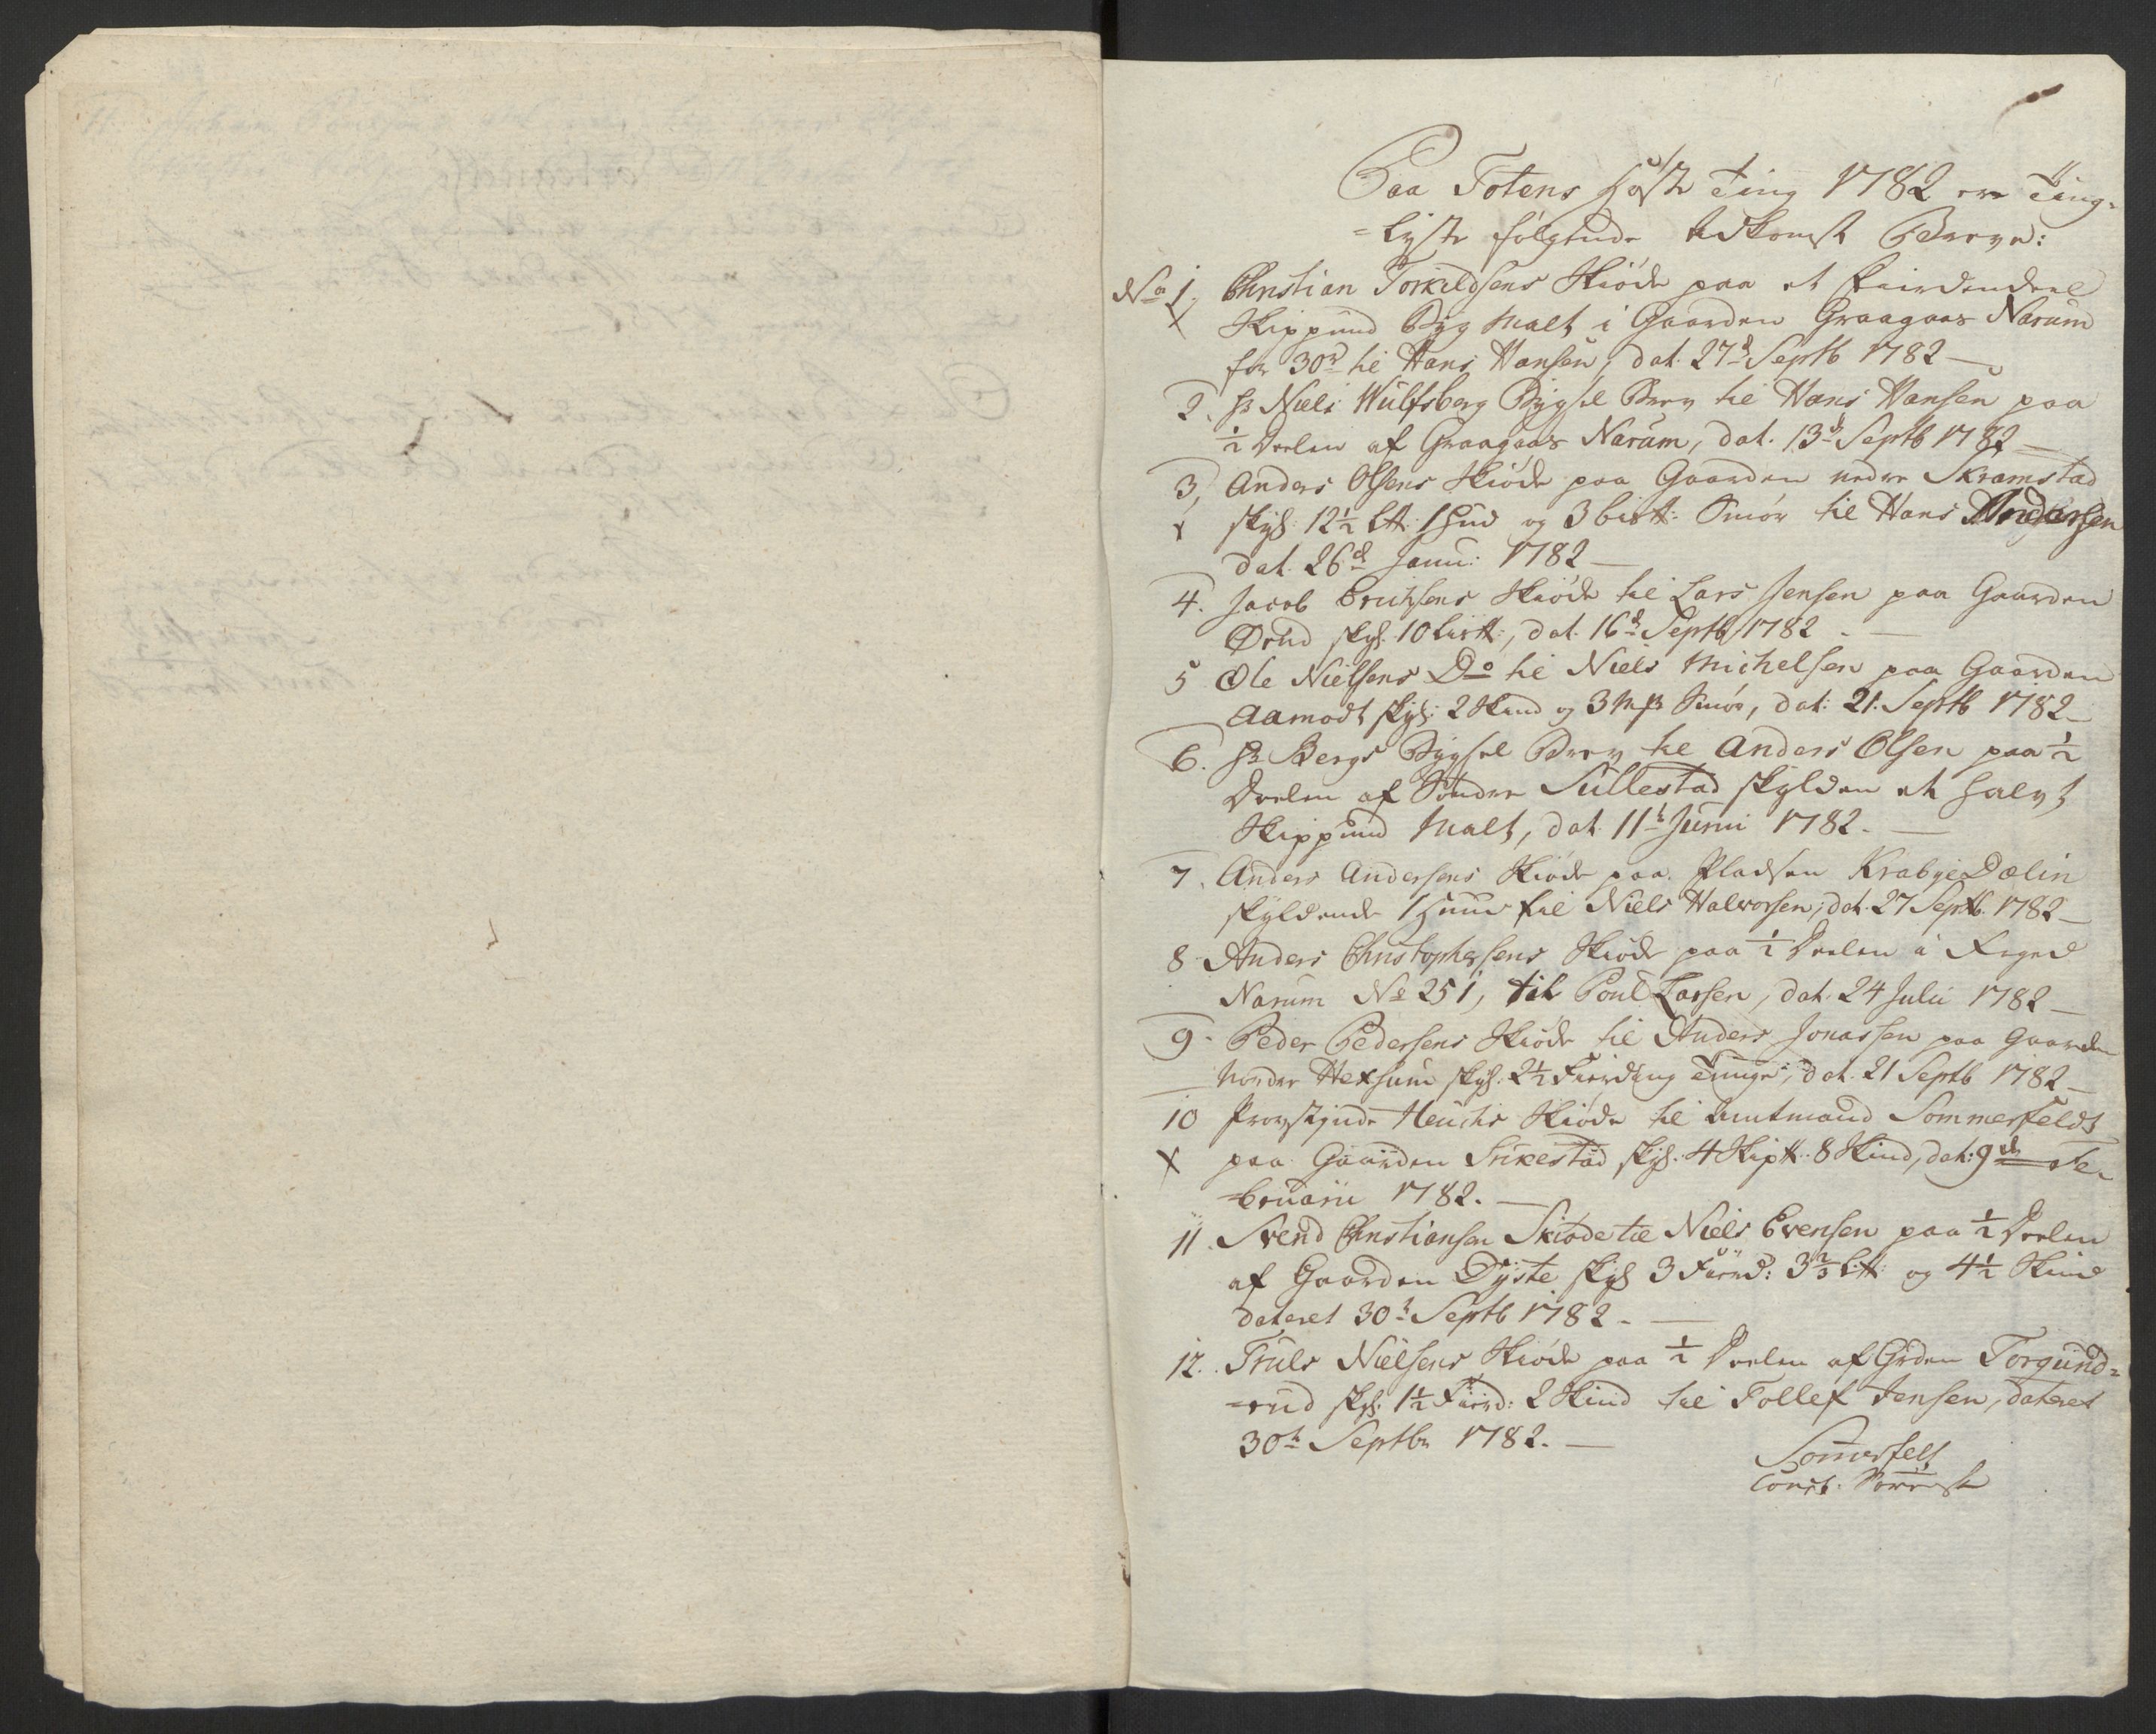 Paa Totens Høste Ting 1782 ere Ting-
=lyste følgende Adkomst Breve:
No 1. Christian Torkildsens Skiøde paa et fierdendeel
x Skippund Byg Malt i Gaarden Graagaas Narum
for 30rd til Hans Hansen, dat. 27d Septb 1782 —
2. Hr Niels Wulfsberg Bygsel Brev til Hans Hansen paa
½ Deelen af Graagaas Narum, dat. 13de Septb 1782 —
3, Anders Olsens Skiøde paa Gaarden nedre Skramstad
x skyl: 12½ L℔: 1 Hud og 3 bis℔: Smør til Hans Andersen
dat. 26d Janu: 1782 —
4. Jacob Erichsens Skiøde til Lars Jensen paa Gaarden
Ørud skyl. 10 Lis℔:, dat. 16d Septb 1782. —
5 Ole Nielsens Do til Niels Michelsen paa Gaarden
Aamodt skyl: 2 Skind og 3 Mrk Smør, dat: 21. Septb 1782 —
6. Hr Bergs Bygsel Brev til Anders Olsen paa ½
Deelen af Søndre Sullestad skylden et halvt
Skippund Malt, dat. 11t Junii 1782. —
7. Anders Andersens Skiøde paa Pladsen Krabye Dælin
skyldende 1 Huud til Niels Halvorsen, dat. 27 Septb. 1782 —
8 Anders Christophersens Skiøde paa ½ Deelen i
Narum No 251, til Poul Larsen, dat. 24 Julii 1782 —
9. Peder Pedersens Skiøde til Anders Jonassen paa Gaarden
Nordre Hexsum skyl. 2½ Fierding Tunge, dat. 21 Septb 1782 —
10 Provstinde Heuchs Skiøde til Amtmand Sommerfeldt
x paa Gaarden Stikestad skyl. 4 Skip℔. 8 Skind, dat: 9de Fe-
=bruarii 1782. —
11. Svend Christiansen Skiøde til Niels Evensen paa ½ Deelen
af Gaarden Dyste skyl 3 Fierd: 3⅔ L℔: og 4½ Skind
dateret 30t Septb 1782. —
12. Truls Nielsens Skiøde paa ½ Deelen af Grden Torgund=
=rud skyl. 1½ Fierd: 2 Skind til Tollef Jensen, dateret
30t Septbr 1782. —
Sommerfelt
Const. Sorenskr